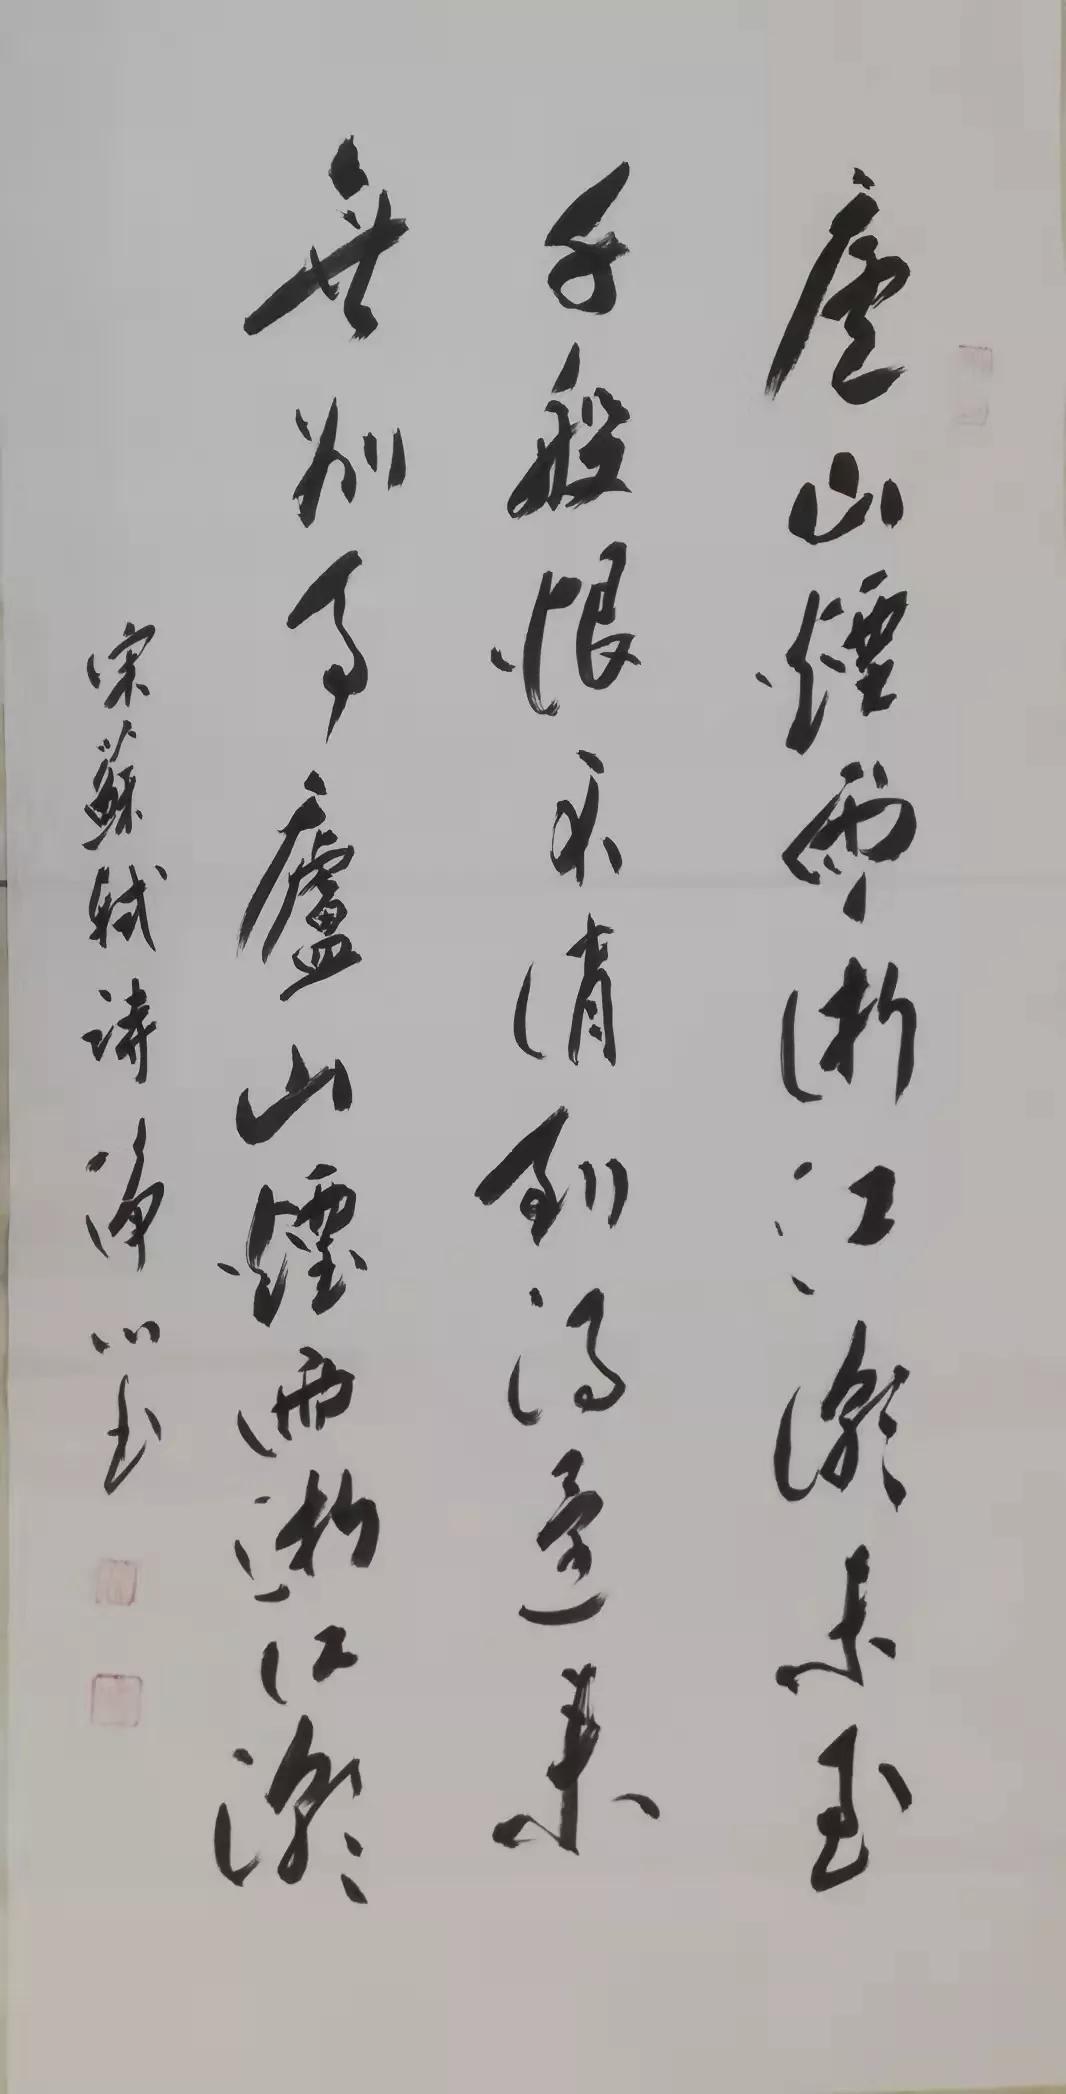 廬山煙雨浙江潮未至
千般恨不消到得還来
無别事廬山煙雨浙江潮
宋蘇軾詩